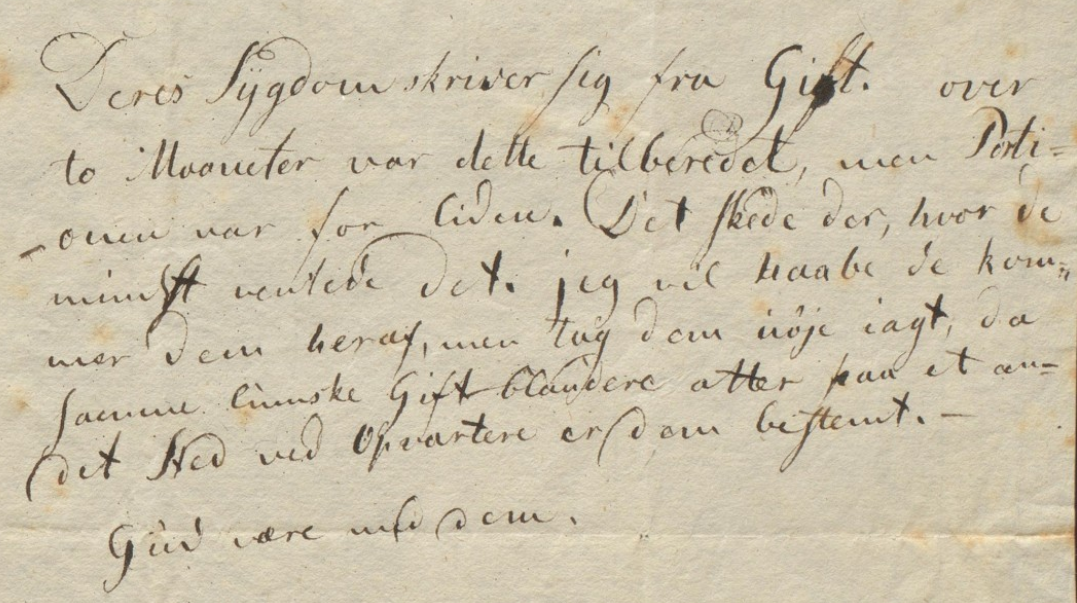 Deres Sÿgdom skriver sig fra Gift. over
to Maaneter var dette tilberedet, men Porti=
-onen var for liden. Det skede der, hvor de
minst ventede det. jeg vil haabe de kom=
mer dem heraf, men tag dem nöje iagt, da
samme lumske Gift-blandere atter paa et an=
det Sted ved Opvartere er dem bestemt. —
Gud være med dem.